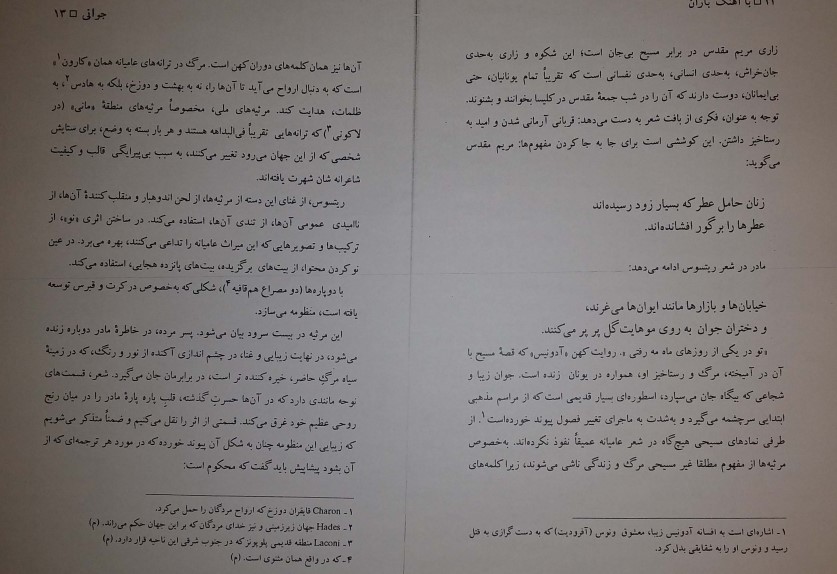 ۱۲ □ با آهنگ باران
زاری مریم مقدس در برابر مسیح بی‌جان است؛ این شکوه و زاری به‌حدی
جان‌خراش، به‌حدی انسانی، به‌حدی نفسانی است که تقریباً تمام یونانیان، حتی
بی‌ایمانان، دوست دارند که آن را در شب جمعهٔ مقدس در کلیسا بخوانند و بشنوند.
توجه به عنوان، فکری از بافت شعر به دست می‌دهد: قربانی آرمانی شدن و امید به
رستاخیز داشتن. این کوششی است برای جا به جا کردن مفهوم‌ها: مریم مقدس
می‌گوید:
زنان حامل عطر که بسیار زود رسیده‌اند
عطرها را بر گور افشانده‌اند.
مادر در شعر ریتسوس ادامه می‌دهد:
خیابان‌ها و بازارها مانند ایوان‌ها می‌غرند،
و دختران جوان به روی موهایت گل پر پر می‌کنند.
«تو در یکی از روزهای ماه مه رفتی». روایت کهن «آدونیس» که قصهٔ مسیح با
آن در آمیخته، مرگ و رستاخیز او، همواره در یونان زنده است. جوان زیبا و
شجاعی که بیگاه جان می‌سپارد، اسطوره‌ای بسیار قدیمی است که از مراسم مذهبی
ابتدایی سرچشمه می‌گیرد و به‌شدت به ماجرای تغییر فصول پیوند خورده‌است۱. از
طرفی نمادهای مسیحی هیچ‌گاه در شعر عامیانه عمیقاً نفوذ نکرده‌اند. به‌خصوص
مرثیه‌ها از مفهوم مطلقا غیر مسیحی مرگ و زندگی ناشی می‌شوند، زیرا کلمه‌های
۱- اشاره‌ای است به افسانه آدونیس زیبا، معشوق ونوس (آفرودیت) که به دست گرازی به قتل
رسید و ونوس او را به شقایقی بدل کرد.
جوانی □ ۱۳
آن‌ها نیز همان کلمه‌های دوران کهن است. مرگ در ترانه‌های عامیانه همان «کارون۱»
است که به دنبال ارواح می‌آید تا آن‌ها را، نه به بهشت و دوزخ، بلکه به هادس۲، به
ظلمات، هدایت کند. مرثیه‌های ملی، مخصوصاً مرثیه‌های منطقهٔ «مانی» (در
لاکونی۳) که ترانه‌هایی تقریباً فی‌البداهه هستند و هر بار بسته به وضع، برای ستایش
شخصی که از این جهان می‌رود تغییر می‌کنند، به سبب بی‌پیرایگی قالب و کیفیت
شاعرانه شان شهرت یافته‌اند.
ریتسوس، از غنای این دسته از مرثیه‌ها، از لحن اندوهبار و منقلب کنندهٔ آن‌ها، از
ناامیدی عمومی آن‌ها، از تندی آن‌ها، استفاده می‌کند. در ساختن اثری «نو»، از
ترکیب‌ها و تصویرهایی که این میراث عامیانه را تداعی می‌کنند، بهره می‌برد. در عین
نو کردن محتوا، از بیت‌های برگزیده، بیت‌های پانزده هجایی، استفاده می‌کند.
با دوپاره‌ها (دو مصراع هم‌قافیه۴)، شکلی که به‌خصوص در کرت و قبرس توسعه
یافته است، منظومه می‌سازد.
این مرثیه در بیست سرود بیان می‌شود. پسر مرده، در خاطرهٔ مادر دوباره زنده
می‌شود، در نهایت زیبایی و غنا، در چشم اندازی آکنده از نور و رنگ، که در زمینهٔ
سیاه مرگ حاضر، خیره کننده تر است، در برابرمان جان می‌گیرد. شعر، قسمت‌های
نوحه مانندی دارد که در آن‌ها حسرتِ گذشته، قلبِ پاره پارهٔ مادر را در میان رنج
روحی عظیم خود غرق می‌کند. قسمتی از اثر را نقل می‌کنیم و ضمناً متذکر می‌شویم
که زیبایی این منظومه چنان به شکل آن پیوند خورده که در مورد هر ترجمه‌ای که از
آن بشود پیشاپیش باید گفت که محکوم است:
۱- Charon قایقران دوزخ که ارواح مردگان را حمل می‌کرد.
۲- Hades جهان زیرزمینی و نیز خدای مردگان که بر این جهان حکم می‌راند. (م)
۳- Laconi منطقه قدیمی پلوپونز که در جنوب شرقی این ناحیه قرار دارد. (م)
۴- که در واقع همان مثنوی است. (م)